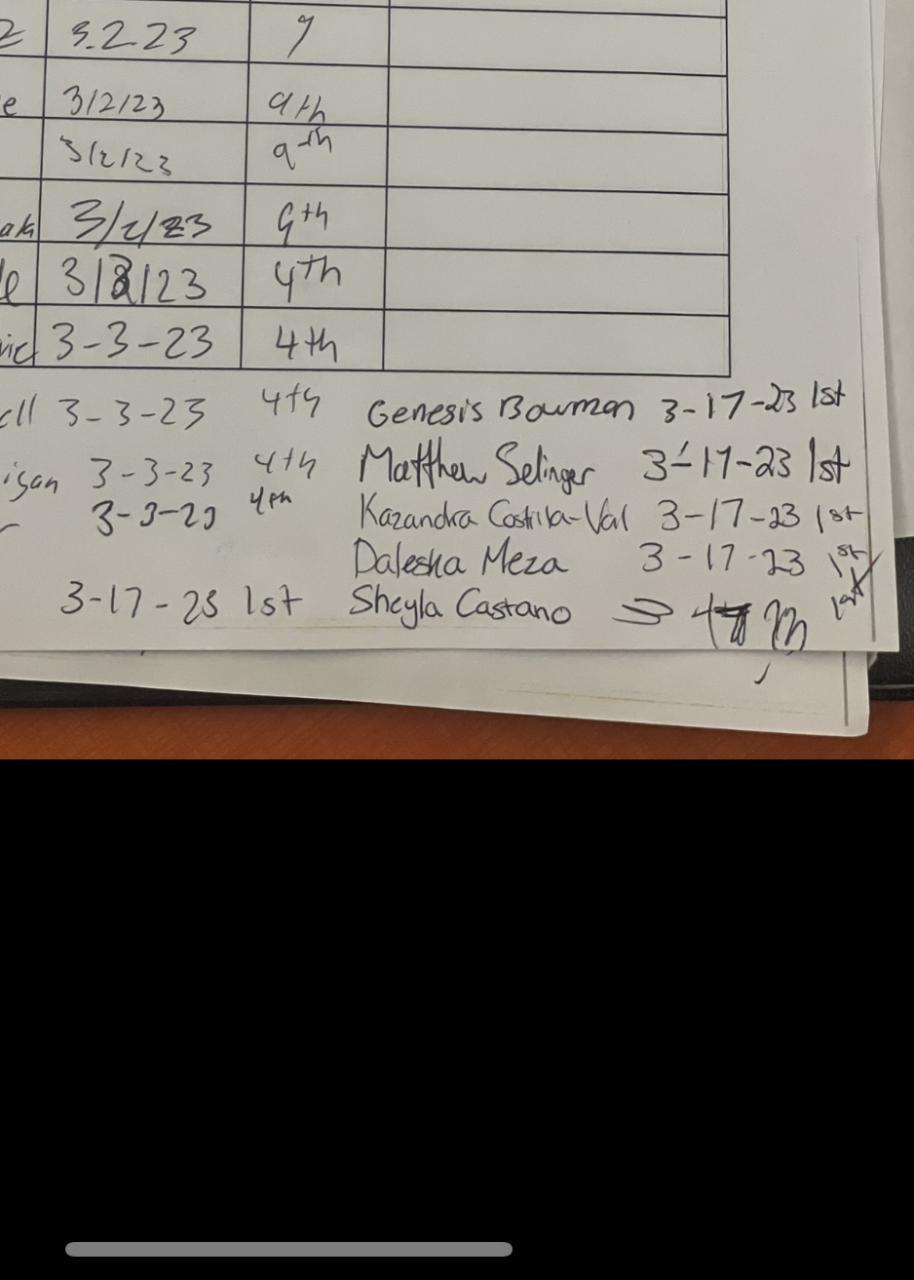 3.2.23 9
3/2/23 9th
3/2/23 9th
3/2/23 9th
3/2/23 4th
3-3-23 4th
3-3-23 4th Genesis Bowman 3-17-23 1st
3-3-23 4th Matthew Selinger 3-17-23 1st
4th Kazandra 3-17-23 1st
Daleska Meza 3-17-23 1st
3-17-23 1st Sheyla Castano